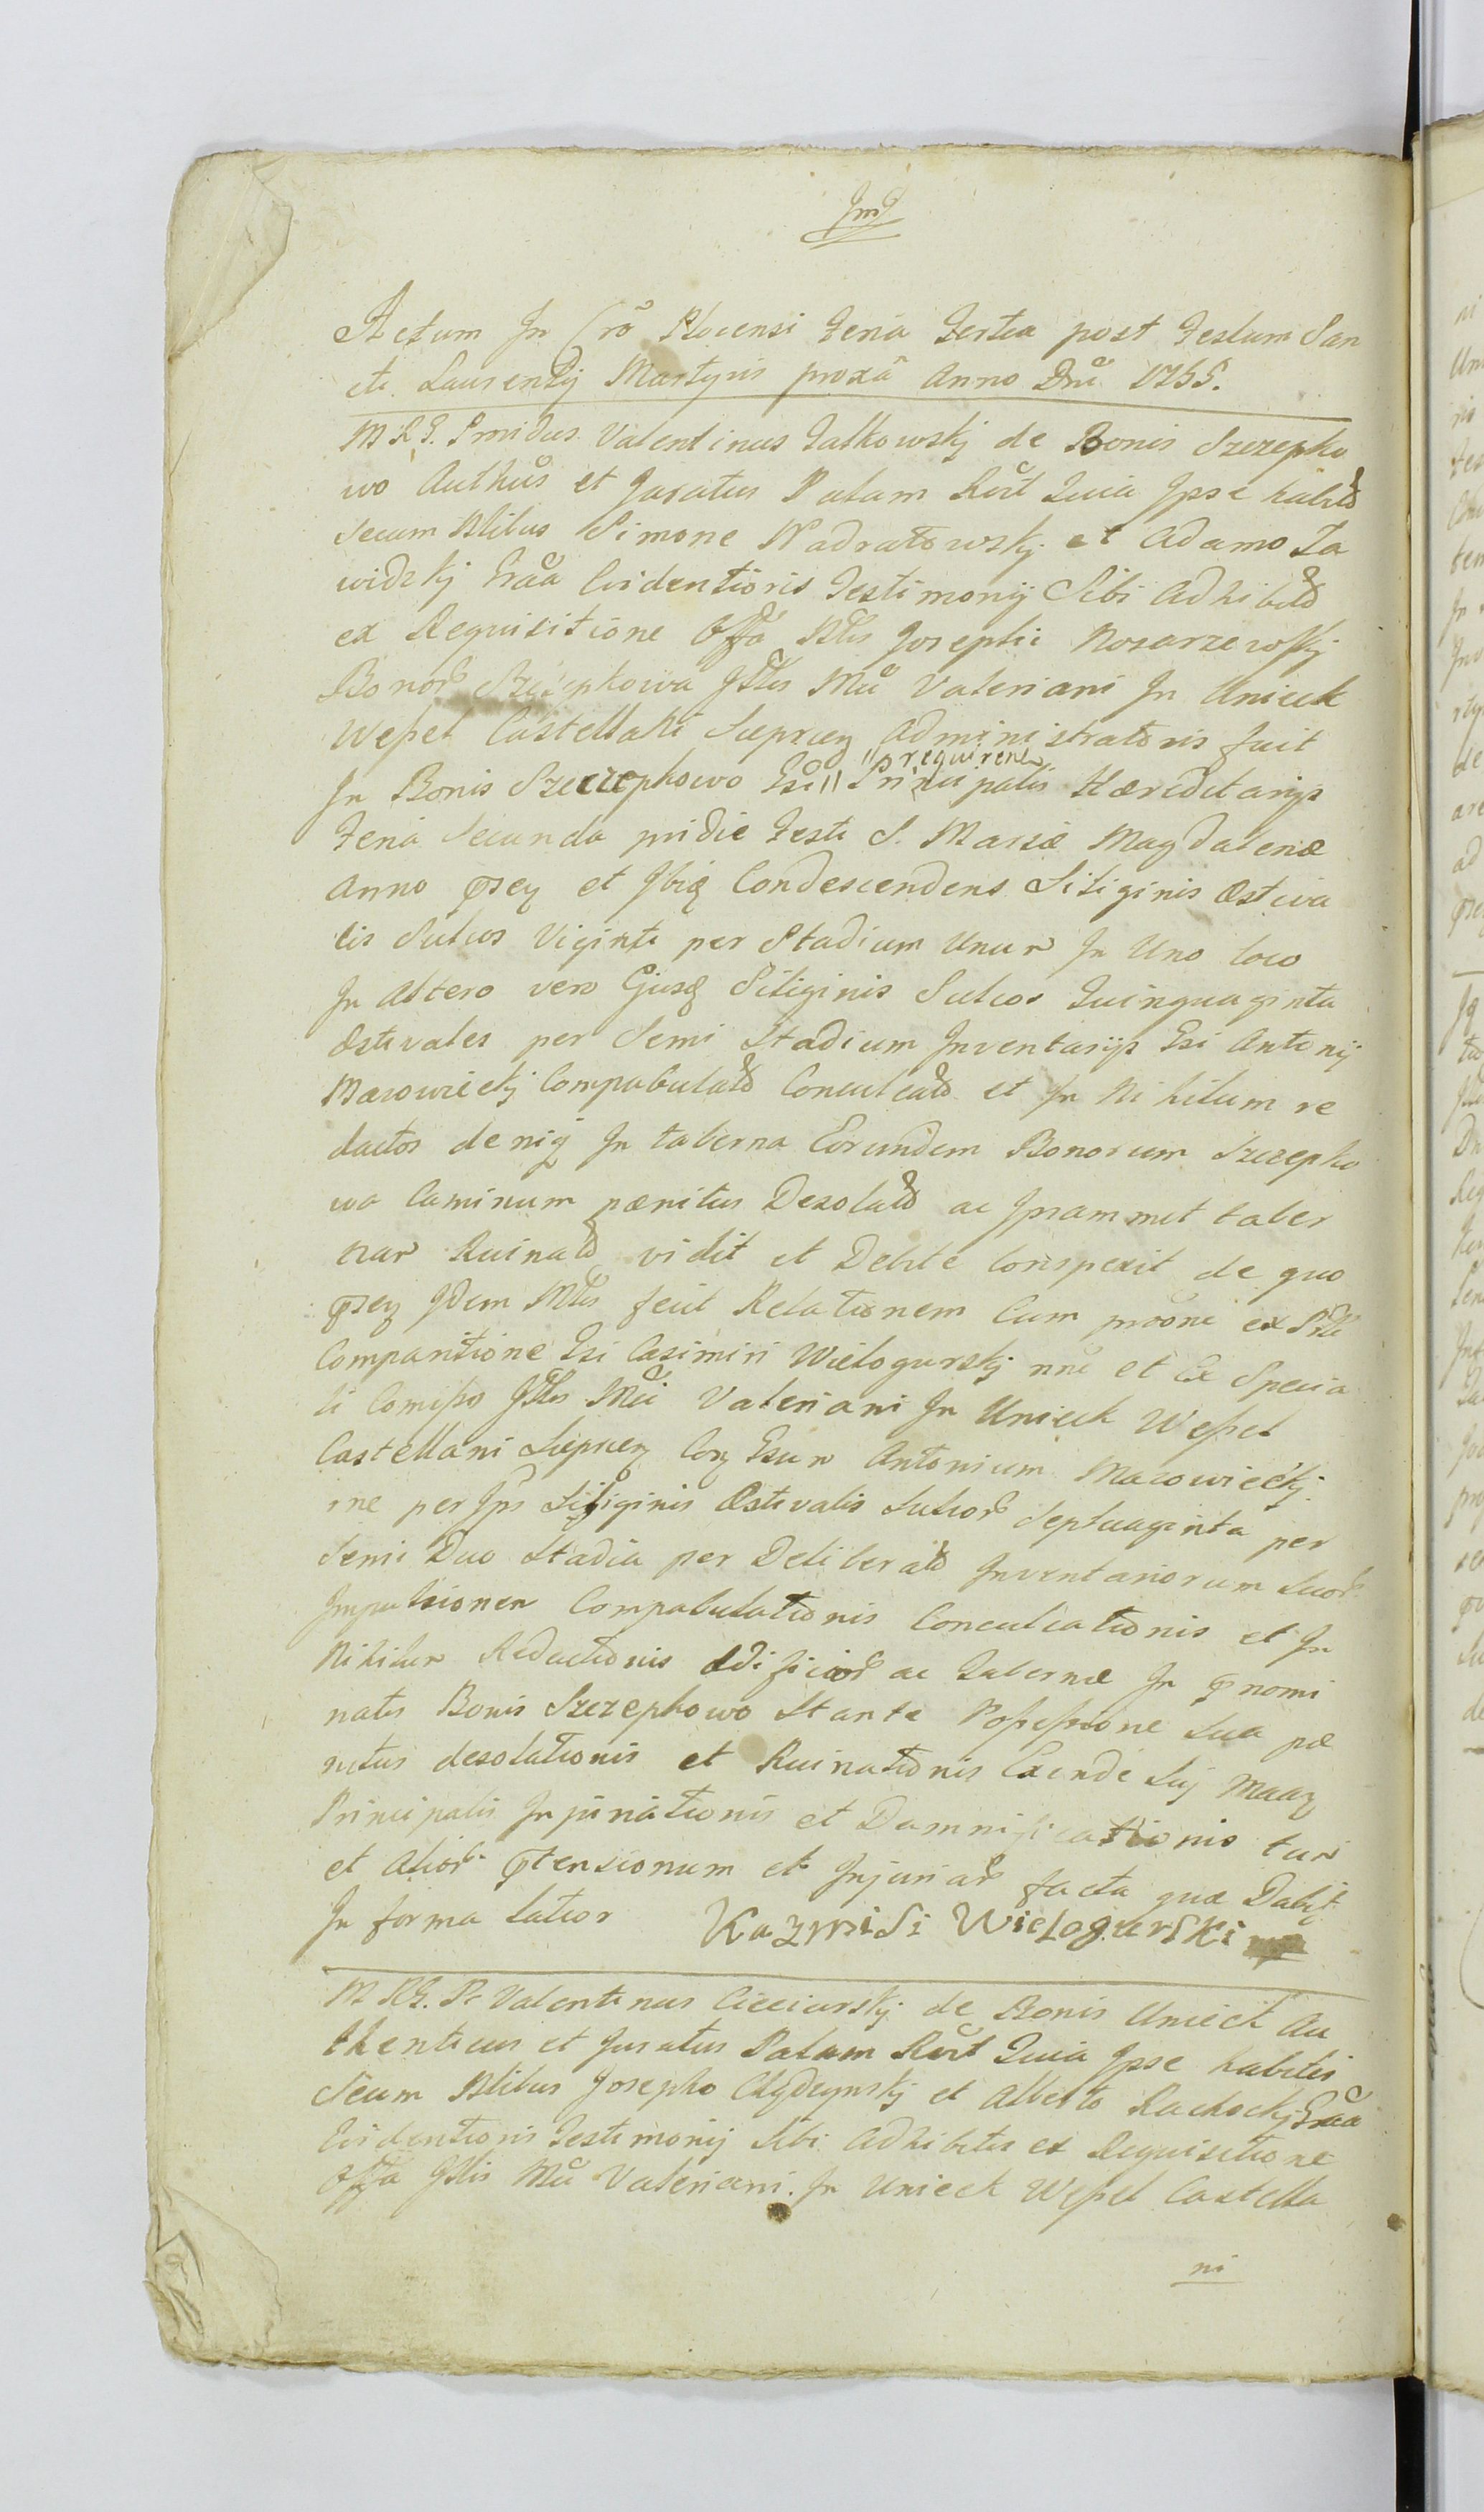 Actum In Cro Plocensi Feria Tertia post Festum San
cti Laurentij Martyris proxa Anno Dni 1755.
M R G. Providus Valentinus Falkowskj de Bonis Szczepko
wo Authus et Juratus Palam Rcit Quia Ipse habitis
secum Nlibus Simone Nadratowskj et Adamo Za
widzkj Graa Evidentioris Testimonij Sibi Adhibitis
ex Requisitione Offa Nlis Josephi Kosarzewskj
Bonor Szczepkowa Illis Mci Valeriani In Unieck
Wessel Castellani Lieprcen Administratoris fuit
In Bonis Szczepkowo Gsi " Principalis "prequirens Hæreditarijs
Feria Secunda pridie Festi S. Mariæ Magdalenæ
Anno pnti et Ibiq Condescendens Siliginis Æstiva
lis Sulcos Viginti per Stadium Unum In Uno loco
In Altero vero Ejusq Siliginis Sulcos Quinquaginta
Æstivales per Semi Stadium Inventarijs Gsi Antonij
Mazowieckj Compabulatos Conculcatos et In Nihilum re
dactos deniq In taberna Eorumdem Bonorum Szczepko
wo Caminum pænitus Desolatum ac Ipsammet taber
nam Ruinatam vidit et Debite Conspexit de quo
pnti Idem Mlis fecit Relationem Cum proone ex Prli
Comparitione Gsi Casimiri Wielogurskj nne et Ex Specia
li Comisso Illis Mci Valeriani In Unieck Wessel
Castellani Lieprcen Con Gsum Antonium Mazowieckj
rne per Ips Siliginis Æstivalis Sulcor Septuaginta per
Semi Duo Stadia per Deliberatam Inventariorum Suor
Impulsionem Compabulationis Conculcationis et In
Nihilum Redactionis Ædificior ac Tabernæ In pnomi
natis Bonis Szczepkowo Stante Possessione Sua pæ
nitus desolationis et Ruinationis Exinde Suj Maan
Principalis Injuriationis et Damnificationis tum
et Alior ptensionum et Injuriar facta quæ Dabit
In forma latior Kazmisi Wielogurski mp
M RG. Pr Valentinus Cieciurskj de Bonis Unieck Au
thenticus et Juratus Palam Rcit Quia Ipse habitis
Secum Nlibus Josepho Chydzynskj et Alberto Rachockj Graa
Evidentioris Testimonij Sibi Adhibitis ex Requisitione
Offa Illis Mci Valeriani In Unieck Wessel Castella
ni